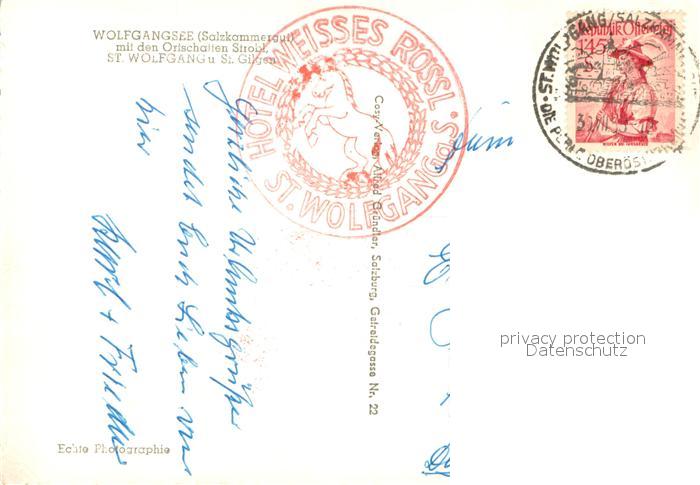 WOLFGANGSEE (Salzkammergut)
mit den Ortschaften Strobl,
ST. WOLFGANG u. St. Gilgen
HOTEL WEISSES RÖSSL
ST. WOLFGANG
Republik Österreich
1.45
ST. WOLFGANG/SALZKAMMER
DIE PERLE OBERÖST
Cosy-Verlag Alfred Gründler, Salzburg, Getreidegasse Nr. 22
Herzliche Urlaubsgrüße
sendet Euch Lieben von
hier
privacy protection
Datenschutz
Echte Photographie